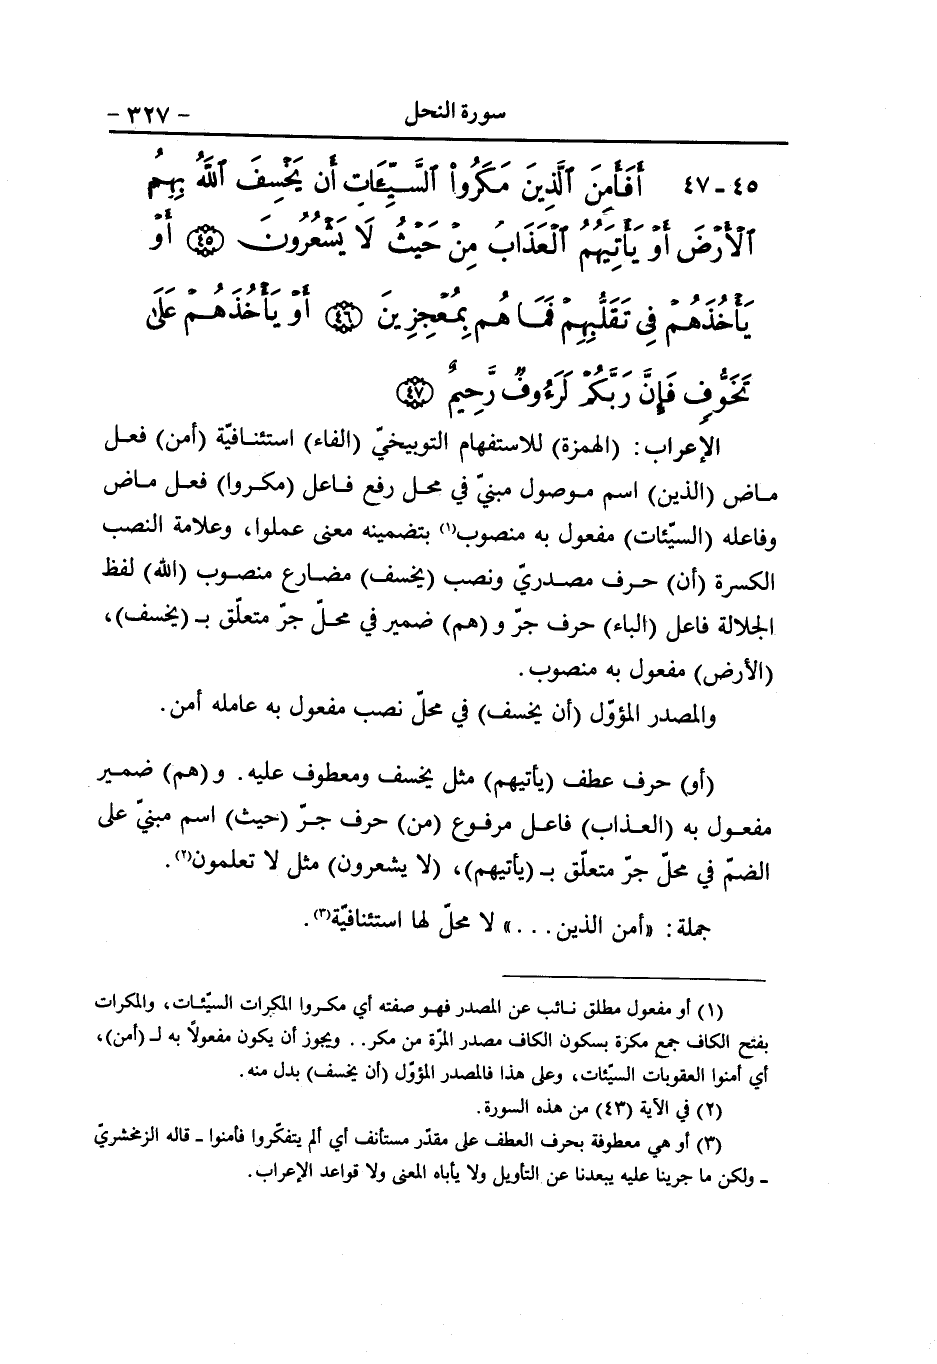 سورة النحل - ٣٢٧ -
٤٥-٤٧ أَفَأَمِنَ ٱلَّذِينَ مَكَرُوا۟ ٱلسَّيِّـَٔاتِ أَن يَخْسِفَ ٱللَّهُ بِهِمُ
ٱلْأَرْضَ أَوْ يَأْتِيَهُمُ ٱلْعَذَابُ مِنْ حَيْثُ لَا يَشْعُرُونَ ﴿٤٥﴾ أَوْ
يَأْخُذَهُمْ فِى تَقَلُّبِهِمْ فَمَا هُم بِمُعْجِزِينَ ﴿٤٦﴾ أَوْ يَأْخُذَهُمْ عَلَىٰ
تَخَوُّفٍ فَإِنَّ رَبَّكُمْ لَرَءُوفٌ رَّحِيمٌ ﴿٤٧﴾
الإعراب: (الهمزة) للاستفهام التوبيخيّ (الفاء) استئنافيّة (أمن) فعل
ماض (الذين) اسم موصول مبنيّ في محل رفع فاعل (مكروا) فعل ماض
وفاعله (السيّئات) مفعول به منصوب(١) بتضمينه معنى عملوا، وعلامة النصب
الكسرة (أن) حرف مصدريّ ونصب (يخسف) مضارع منصوب (الله) لفظ
الجلالة فاعل (الباء) حرف جرّ و (هم) ضمير في محلّ جرّ متعلّق بـ (يخسف)،
(الأرض) مفعول به منصوب.
والمصدر المؤوّل (أن يخسف) في محلّ نصب مفعول به عامله أمن.
(أو) حرف عطف (يأتيهم) مثل يخسف ومعطوف عليه. و (هم) ضمير
مفعول به (العذاب) فاعل مرفوع (من) حرف جرّ (حيث) اسم مبنيّ على
الضمّ في محلّ جرّ متعلّق بـ (يأتيهم)، (لا يشعرون) مثل لا تعلمون(٢).
جملة: «أمن الذين...» لا محلّ لها استئنافيّة(٣).
(١) أو مفعول مطلق نائب عن المصدر فهو صفته أي مكروا المكرات السيّئات، والمكرات
بفتح الكاف جمع مكرة بسكون الكاف مصدر المرّة من مكر.. ويجوز أن يكون مفعولاً به لـ (أمن)،
أي أمنوا العقوبات السيّئات، وعلى هذا فالمصدر المؤوّل (أن يخسف) بدل منه.
(٢) في الآية (٤٣) من هذه السورة.
(٣) أو هي معطوفة بحرف العطف على مقدّر مستأنف أي ألم يتفكّروا فأمنوا - قاله الزمخشريّ
- ولكن ما جرينا عليه يبعدنا عن التأويل ولا يأباه المعنى ولا قواعد الإعراب.